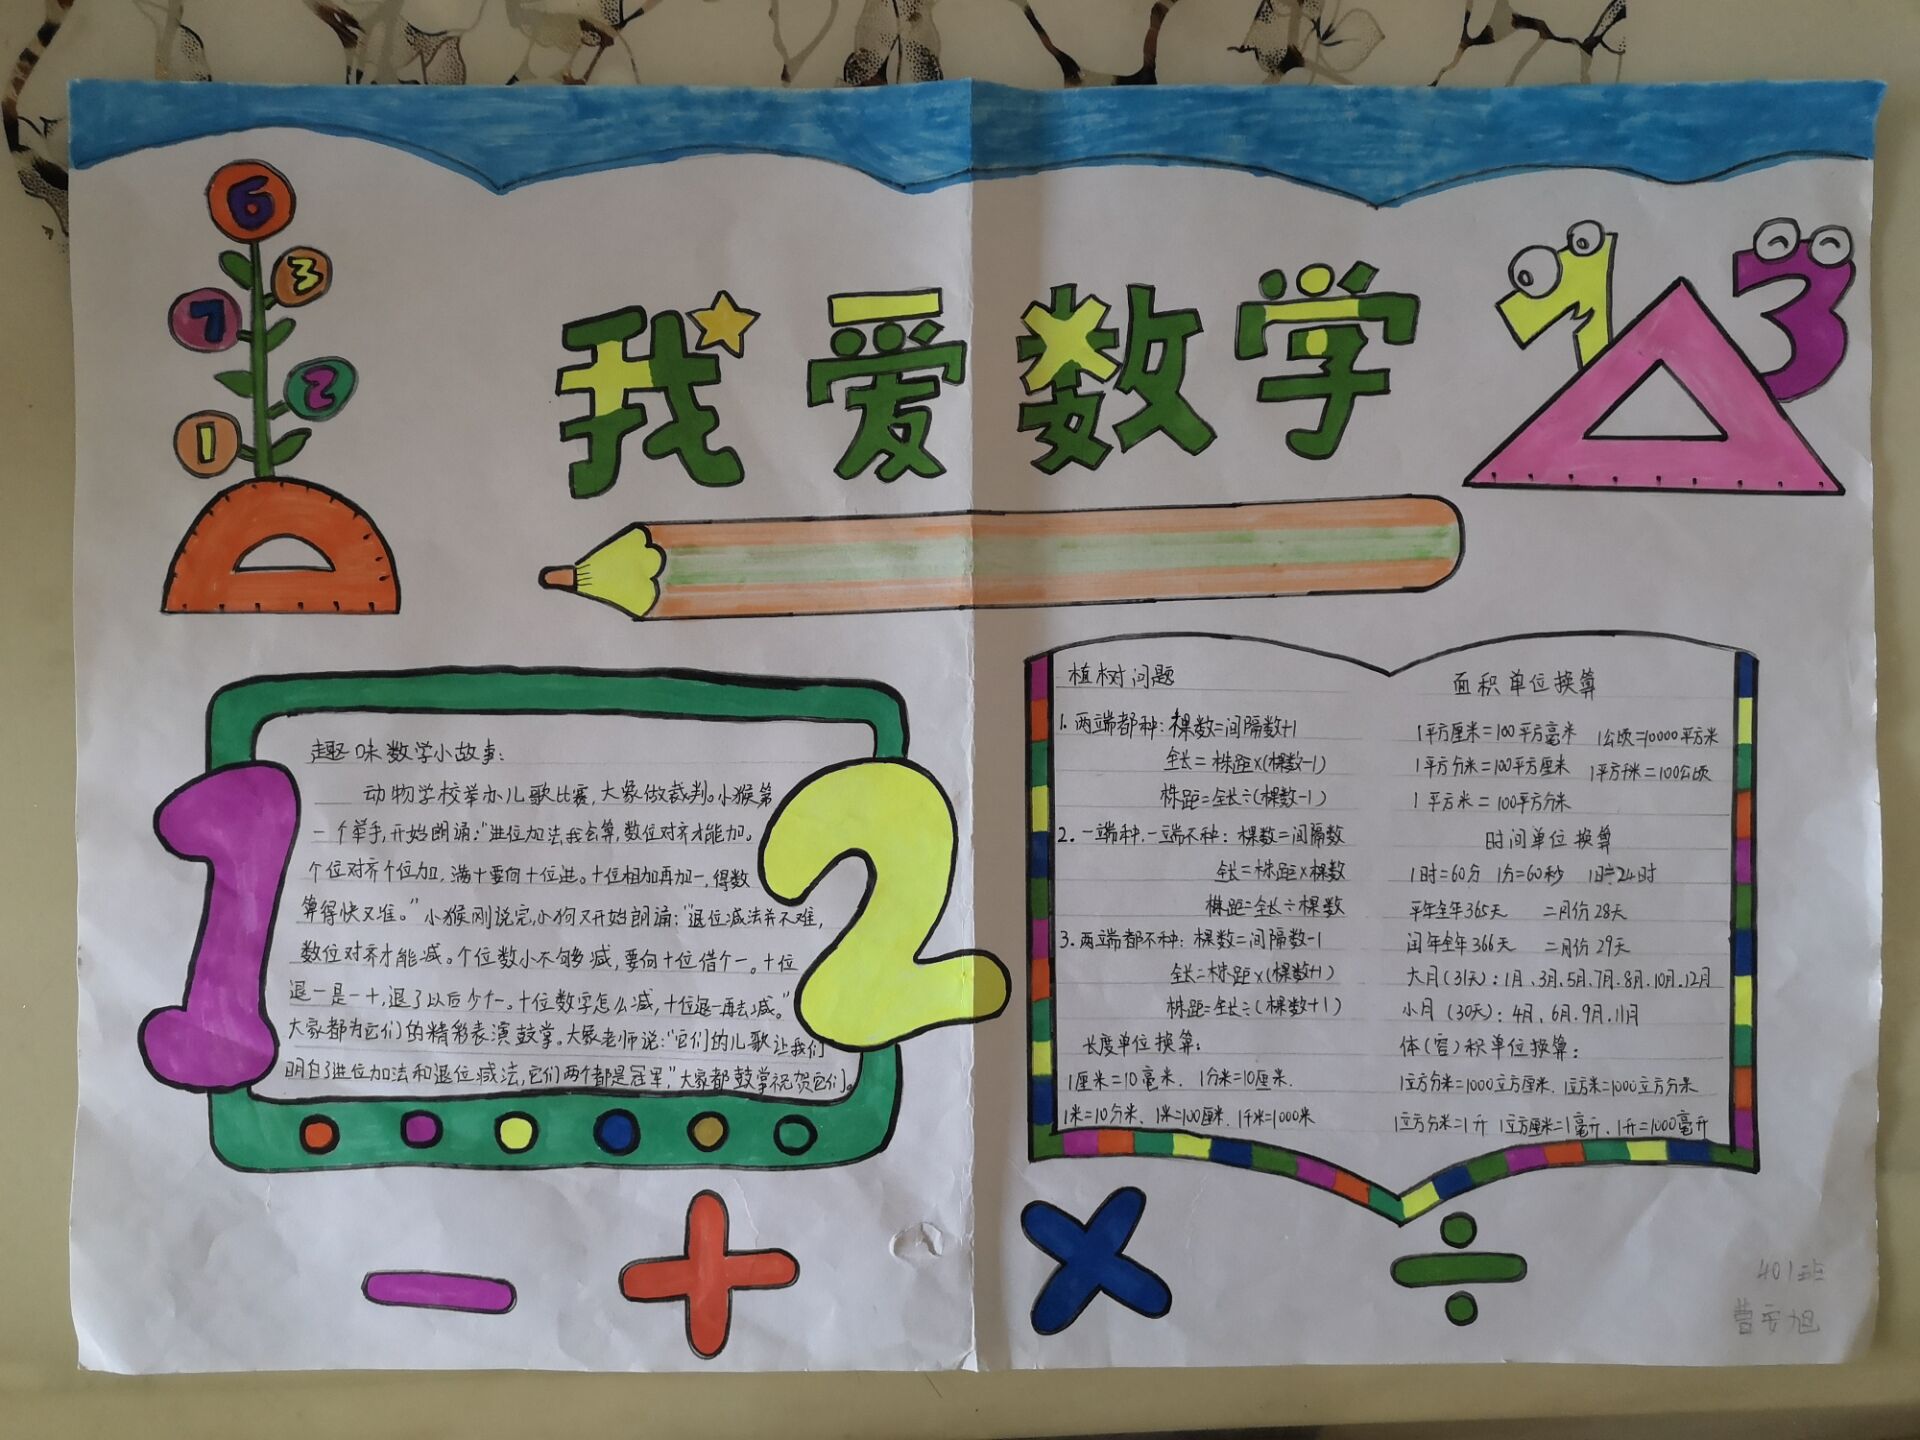 6
3
7
2
1
我爱数学
1 3
1
2
趣味数学小故事:
动物学校举办儿歌比赛,大象做裁判。小猴第
一个举手,开始朗诵:“进位加法我会算,数位对齐才能加。
个位对齐个位加,满十要向十位进。十位相加再加一,得数
算得快又准。”小猴刚说完,小狗又开始朗诵:“退位减法并不难,
数位对齐才能减。个位数小不够减,要向十位借个一。十位
退一是一十,退了以后少个一。十位数字怎么减,十位退一再去减。”
大家都为它们的精彩表演鼓掌。大象老师说:“它们的儿歌让我们
明白了进位加法和退位减法,它们两个都是冠军,”大家都鼓掌祝贺它们。
植树问题
1.两端都种:棵数=间隔数+1
全长=株距×(棵数-1)
株距=全长÷(棵数-1)
2.一端种.一端不种:棵数=间隔数
全长=株距×棵数
株距=全长÷棵数
3.两端都不种:棵数=间隔数-1
全长=株距×(棵数+1)
株距=全长÷(棵数+1)
长度单位换算:
1厘米=10毫米. 1分米=10厘米.
1米=10分米、1米=100厘米. 1千米=1000米
面积单位换算
1平方厘米=100平方毫米 1公顷=10000平方米
1平方分米=100平方厘米 1平方千米=100公顷
1平方米=100平方分米
时间单位换算
1时=60分 1分=60秒 1日=24时
平年全年365天 二月份28天
闰年全年366天 二月份29天
大月(31天):1月、3月、5月、7月、8月、10月、12月
小月(30天):4月、6月、9月、11月
体(容)积单位换算:
1立方分米=1000立方厘米、1立方米=1000立方分米
1立方分米=1升 1立方厘米=1毫升、1升=1000毫升
- + × ÷
401班
曹安旭